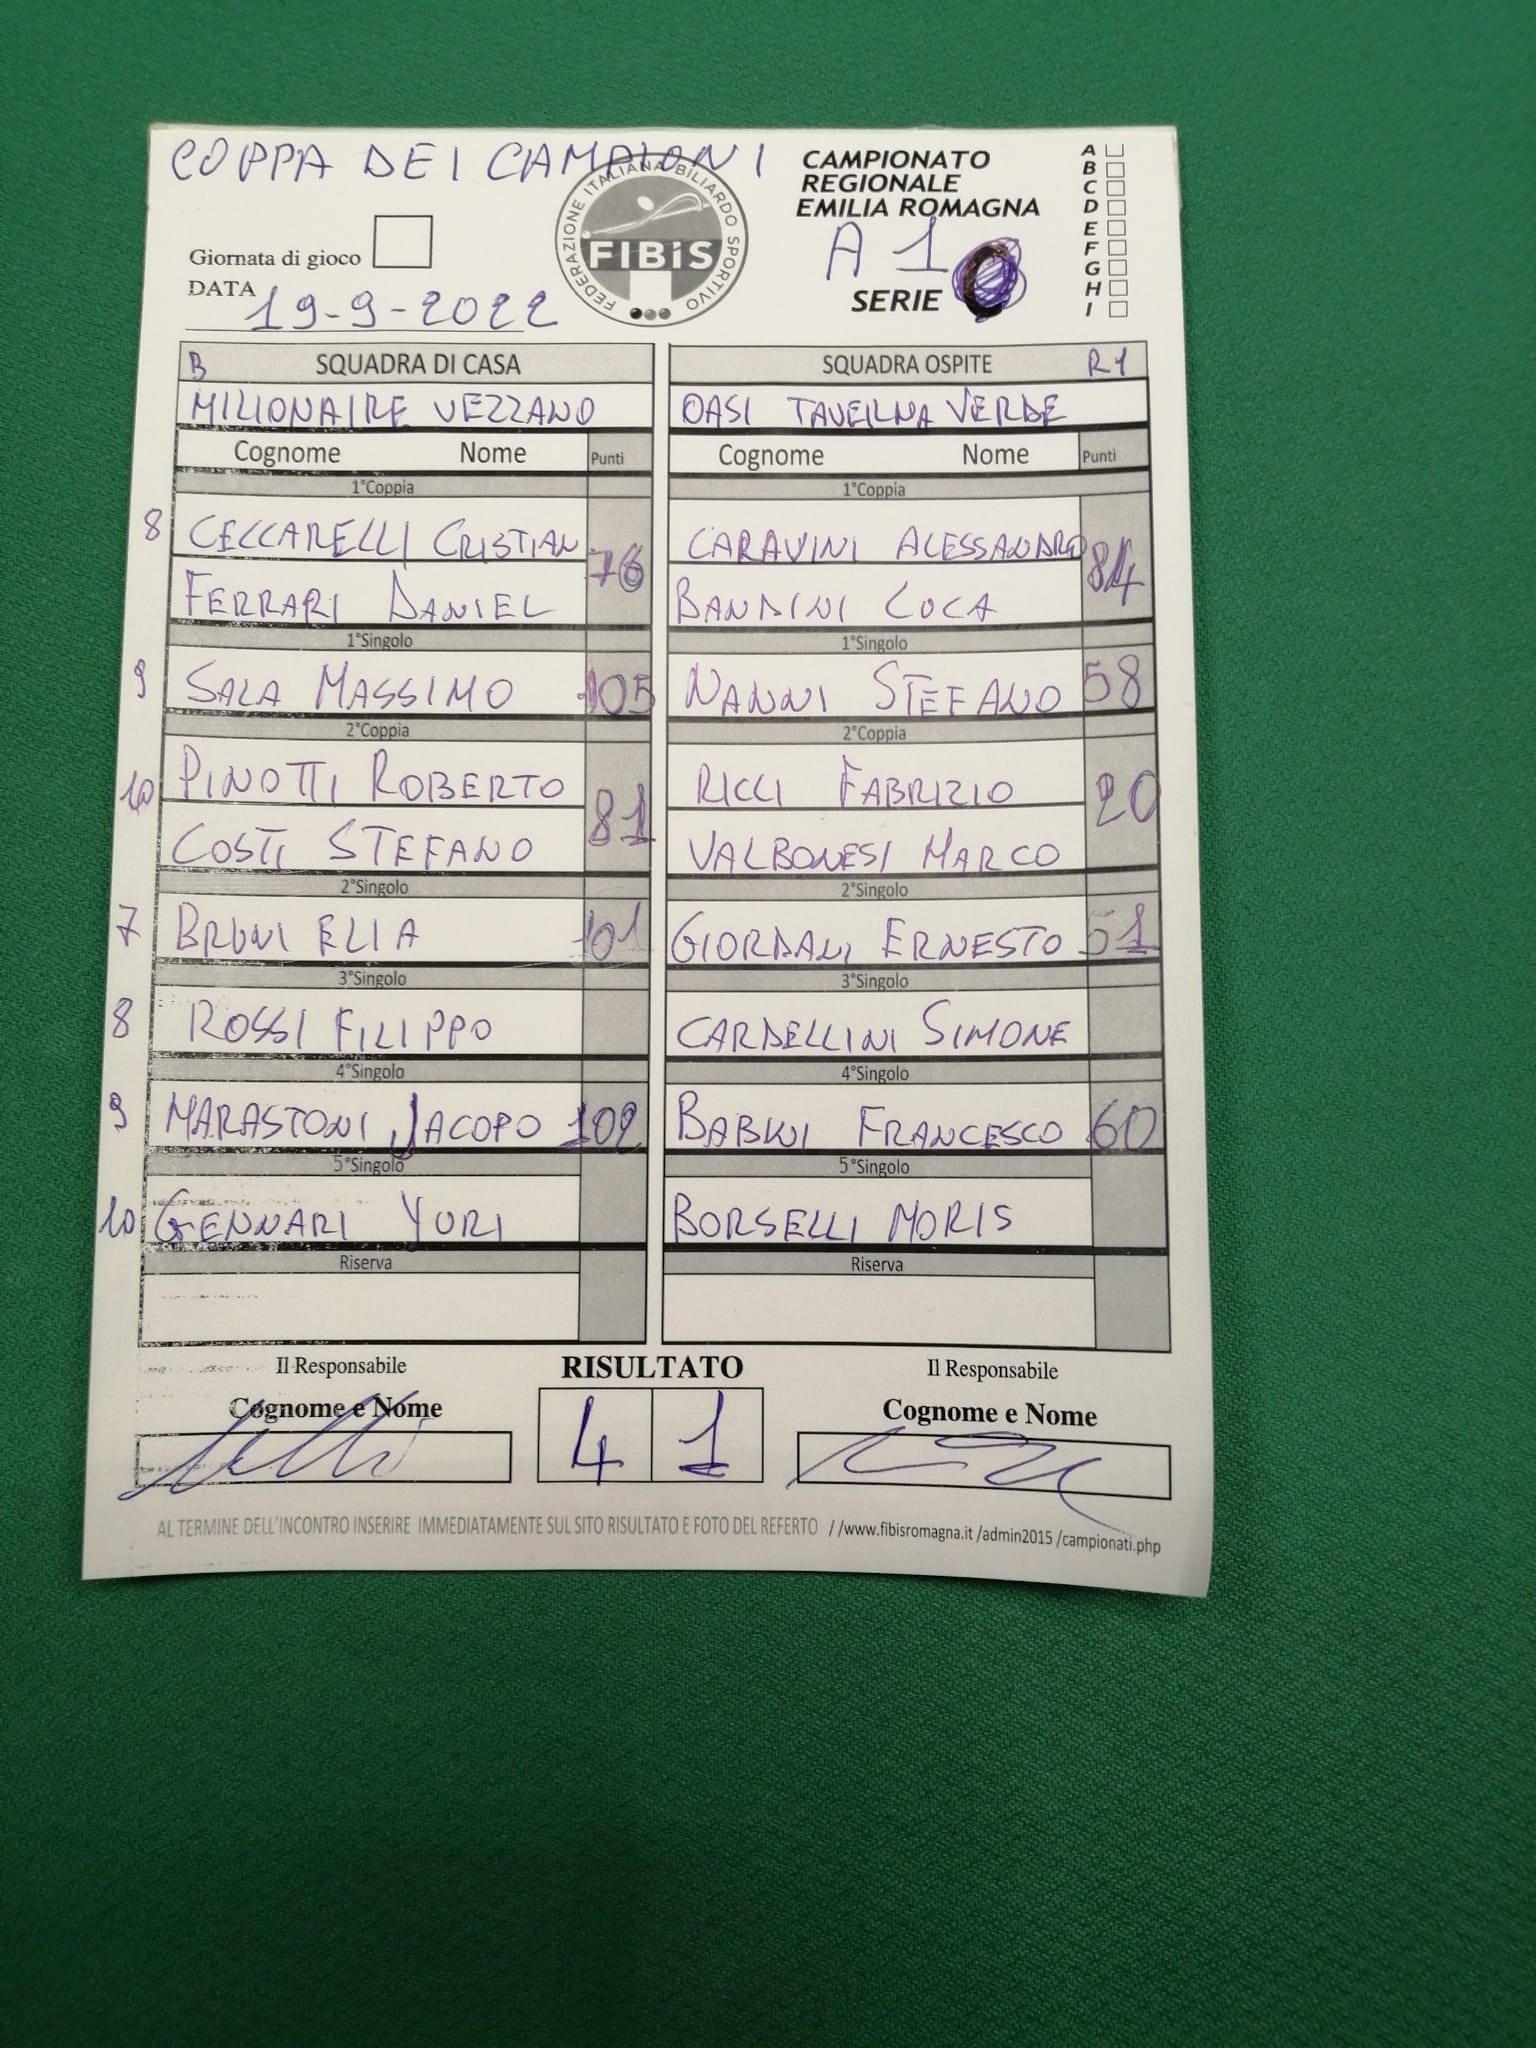 COPPA DEI CAMPIONI
CAMPIONATO
REGIONALE
EMILIA ROMAGNA
A 1
SERIE C
A
B
C
D
E
F
G
H
I
FEDERAZIONE ITALIANA BILIARDO SPORTIVO
FIBiS
Giornata di gioco
DATA 19-9-2022
B SQUADRA DI CASA
SQUADRA OSPITE R1
MILIONAIRE VEZZANO
OASI TAVERNA VERDE
Cognome Nome Punti
Cognome Nome Punti
1°Coppia
1°Coppia
8 CECCARELLI CRISTIAN 76
CARAVINI ALESSANDRO 84
FERRARI DANIEL
BANDINI LUCA
1°Singolo
1°Singolo
9 SALA MASSIMO 105
NANNI STEFANO 58
2°Coppia
2°Coppia
10 PINOTTI ROBERTO 81
RICCI FABRIZIO 20
COSTI STEFANO
VALBONESI MARCO
2°Singolo
2°Singolo
7 BRUNI ELIA 101
GIORDANI ERNESTO 51
3°Singolo
3°Singolo
8 ROSSI FILIPPO
CARDELLINI SIMONE
4°Singolo
4°Singolo
9 MARASTONI JACOPO 102
BABINI FRANCESCO 60
5°Singolo
5°Singolo
10 GENNARI YURI
BORSELLI MORIS
Riserva
Riserva
Il Responsabile
RISULTATO
Il Responsabile
Cognome e Nome
4 1
Cognome e Nome
AL TERMINE DELL'INCONTRO INSERIRE IMMEDIATAMENTE SUL SITO RISULTATO E FOTO DEL REFERTO //www.fibisromagna.it /admin2015 /campionati.php